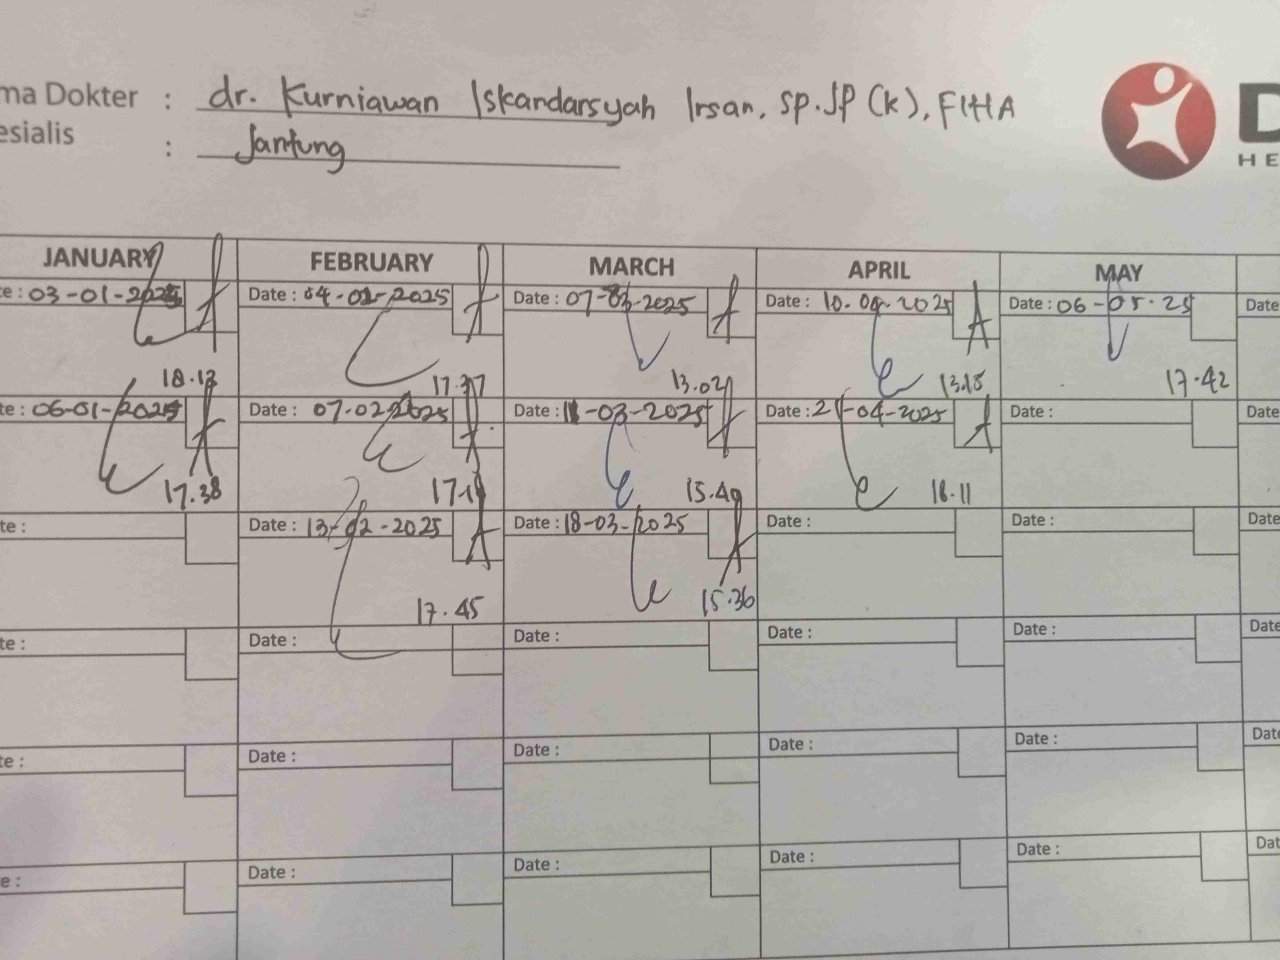 ma Dokter : dr. Kurniawan Iskandarsyah Irsan, Sp.JP (K), FIHA
esialis : Jantung
D
HE
JANUARY FEBRUARY MARCH APRIL MAY
te : 03-01-2025 Date : 04-02-2025 Date : 07-03-2025 Date : 10.04.2025 Date : 06-05-25 Date
18.13 17.37 13.02 13.15 17.42
te : 06-01-2025 Date : 07.02.2025 Date : 11-03-2025 Date : 21-04-2025 Date : Date
17.38 17.19 15.49 18.11
te : Date : 13-02-2025 Date : 18-03-2025 Date : Date : Date
17.45 15.36
te : Date : Date : Date : Date : Date
te : Date : Date : Date : Date : Dat
e : Date : Date : Date : Date : Dat